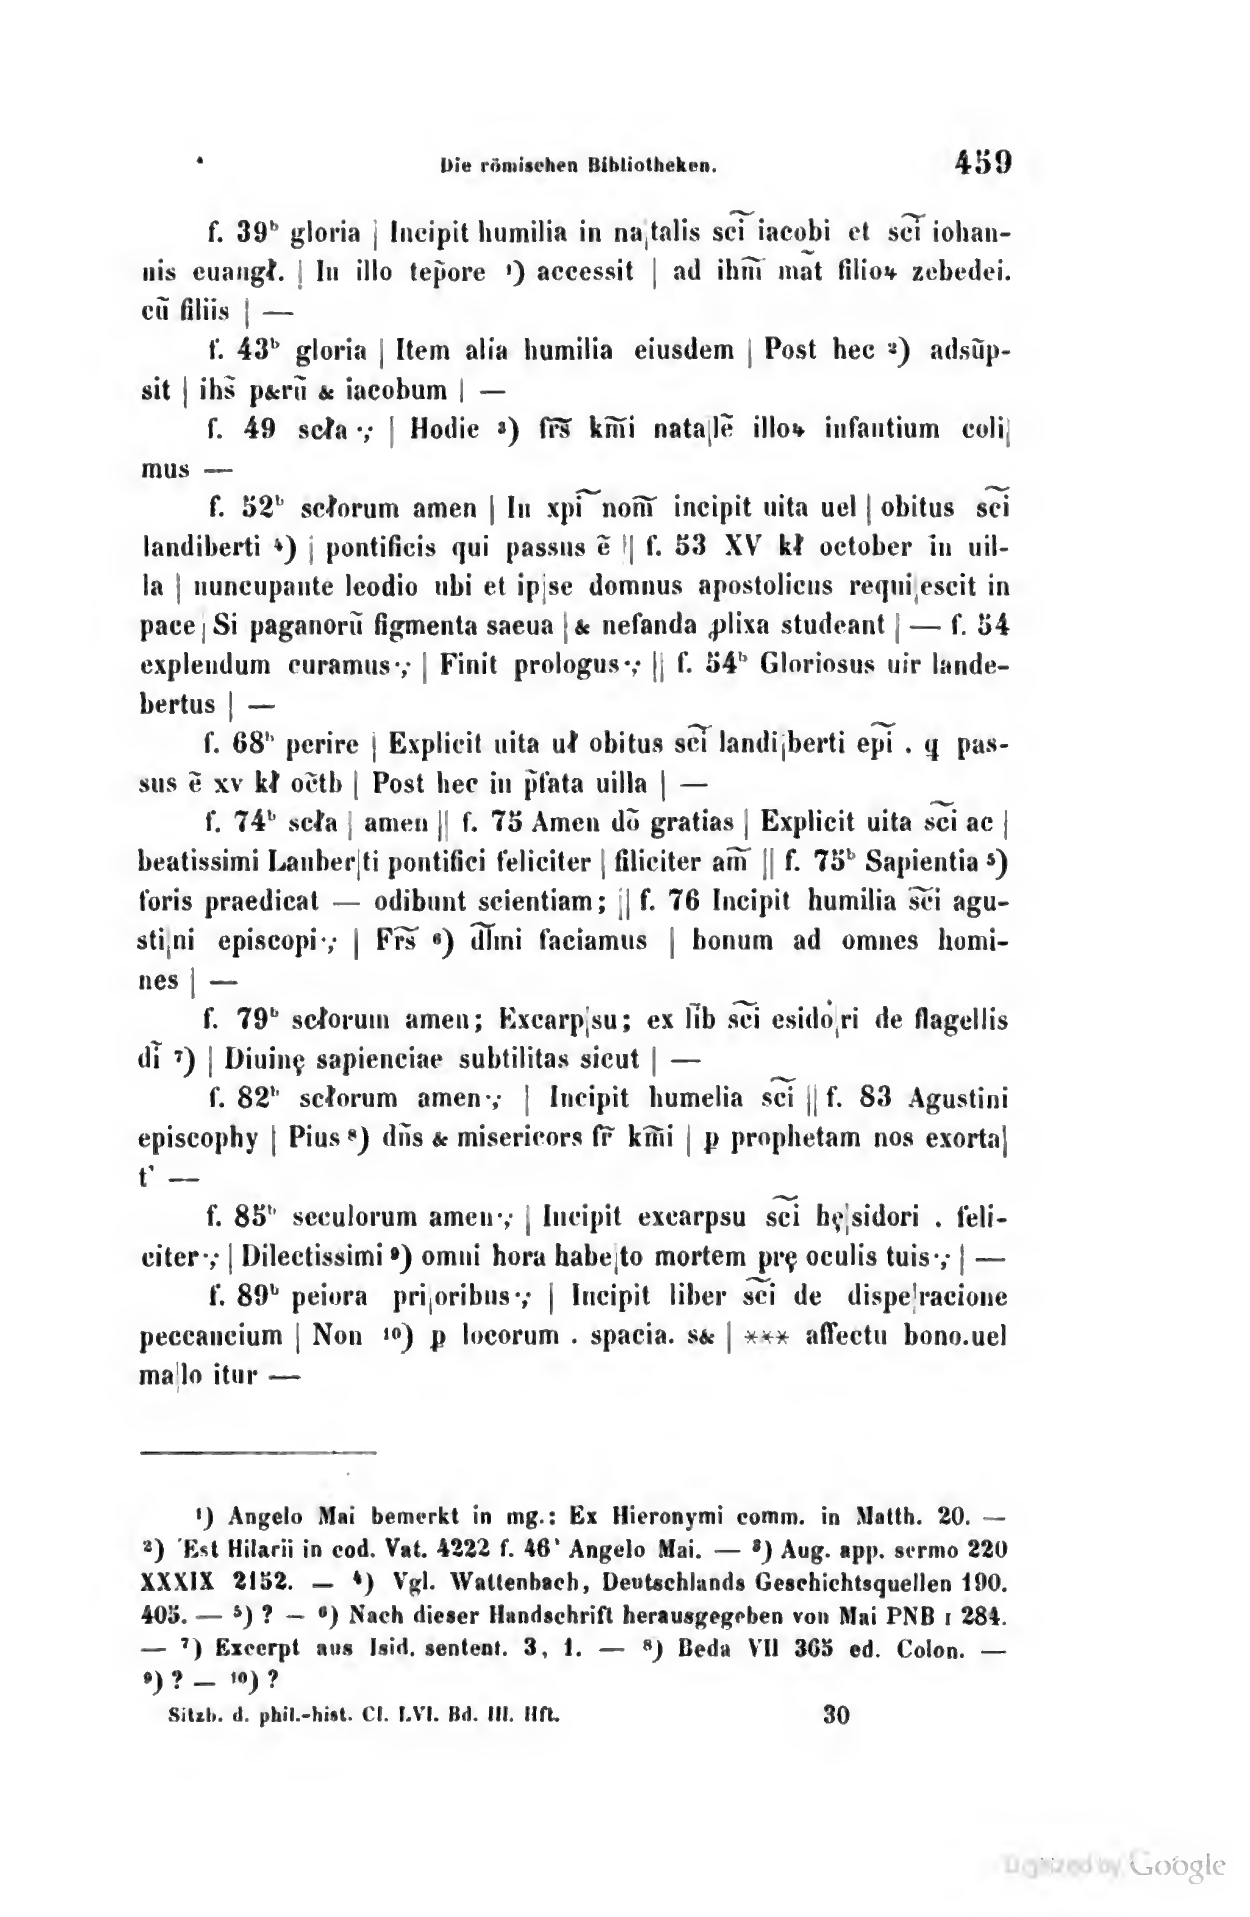 Die römischen Bibliotheken. 459
f. 39ᵇ gloria | Incipit humilia in na|talis sc͠i iacobi et sc͠i iohan-
nis euangł. | In illo tep̄ore ¹) accessit | ad ihm̃ mat̃ filioꝝ zebedei.
cũ filiis | —
f. 43ᵇ gloria | Item alia humilia eiusdem | Post hec ²) adsũp-
sit | ihs̃ p&rũ & iacobum | —
f. 49 scła ·,· | Hodie ³) frs̃ km̃i nata|lẽ illoꝝ infantium coli|
mus —
f. 52ᵇ scłorum amen | In xpi͠ nom̃ incipit uita uel | obitus sc͠i
landiberti ⁴) | pontificis qui passus ẽ || f. 53 XV kł october in uil-
la | nuncupante leodio ubi et ip|se domnus apostolicus requi|escit in
pace | Si paganorũ figmenta saeua | & nefanda ꝓlixa studeant | — f. 54
explendum curamus·,· | Finit prologus·,· || f. 54ᵇ Gloriosus uir lande-
bertus | —
f. 68ᵇ perire | Explicit uita uł obitus sc͠i landi|berti ep͠i . q pas-
sus ẽ xv kł oc̃tb | Post hec in p̃fata uilla | —
f. 74ᵇ scła | amen || f. 75 Amen dõ gratias | Explicit uita sc͠i ac |
beatissimi Lanber|ti pontifici feliciter | filiciter am̃ || f. 75ᵇ Sapientia ⁵)
foris praedicat — odibunt scientiam; || f. 76 Incipit humilia sc͠i agu-
sti|ni episcopi·,· | Frs̃ ⁶) dl̃mi faciamus | bonum ad omnes homi-
nes | —
f. 79ᵇ scłorum amen; Excarp|su; ex lib̃ sc͠i esido|ri de flagellis
dĩ ⁷) | Diuinę sapienciae subtilitas sicut | —
f. 82ᵇ scłorum amen·,· | Incipit humelia sc͠i || f. 83 Agustini
episcophy | Pius ⁸) dñs & misericors fr̃ km̃i | ꝑ prophetam nos exorta|
t' —
f. 85ᵇ seculorum amen·,· | Incipit excarpsu sc͠i hę|sidori . feli-
citer·,· | Dilectissimi ⁹) omni hora habe|to mortem prę oculis tuis·,· | —
f. 89ᵇ peiora pri|oribus·,· | Incipit liber sc͠i de dispe|racione
peccancium | Non ¹⁰) ꝑ locorum . spacia. s& | *** affectu bono.uel
ma|lo itur —
¹) Angelo Mai bemerkt in mg.: Ex Hieronymi comm. in Matth. 20. —
²) 'Est Hilarii in cod. Vat. 4222 f. 46' Angelo Mai. — ³) Aug. app. sermo 220
XXXIX 2152. — ⁴) Vgl. Wattenbach, Deutschlands Geschichtsquellen 190.
405. — ⁵) ? — ⁶) Nach dieser Handschrift herausgegeben von Mai PNB I 284.
— ⁷) Excerpt aus Isid. sentent. 3, 1. — ⁸) Beda VII 365 ed. Colon. —
⁹) ? — ¹⁰) ?
Sitzb. d. phil.-hist. Cl. LVI. Bd. III. Hft. 30
Digitized by Google